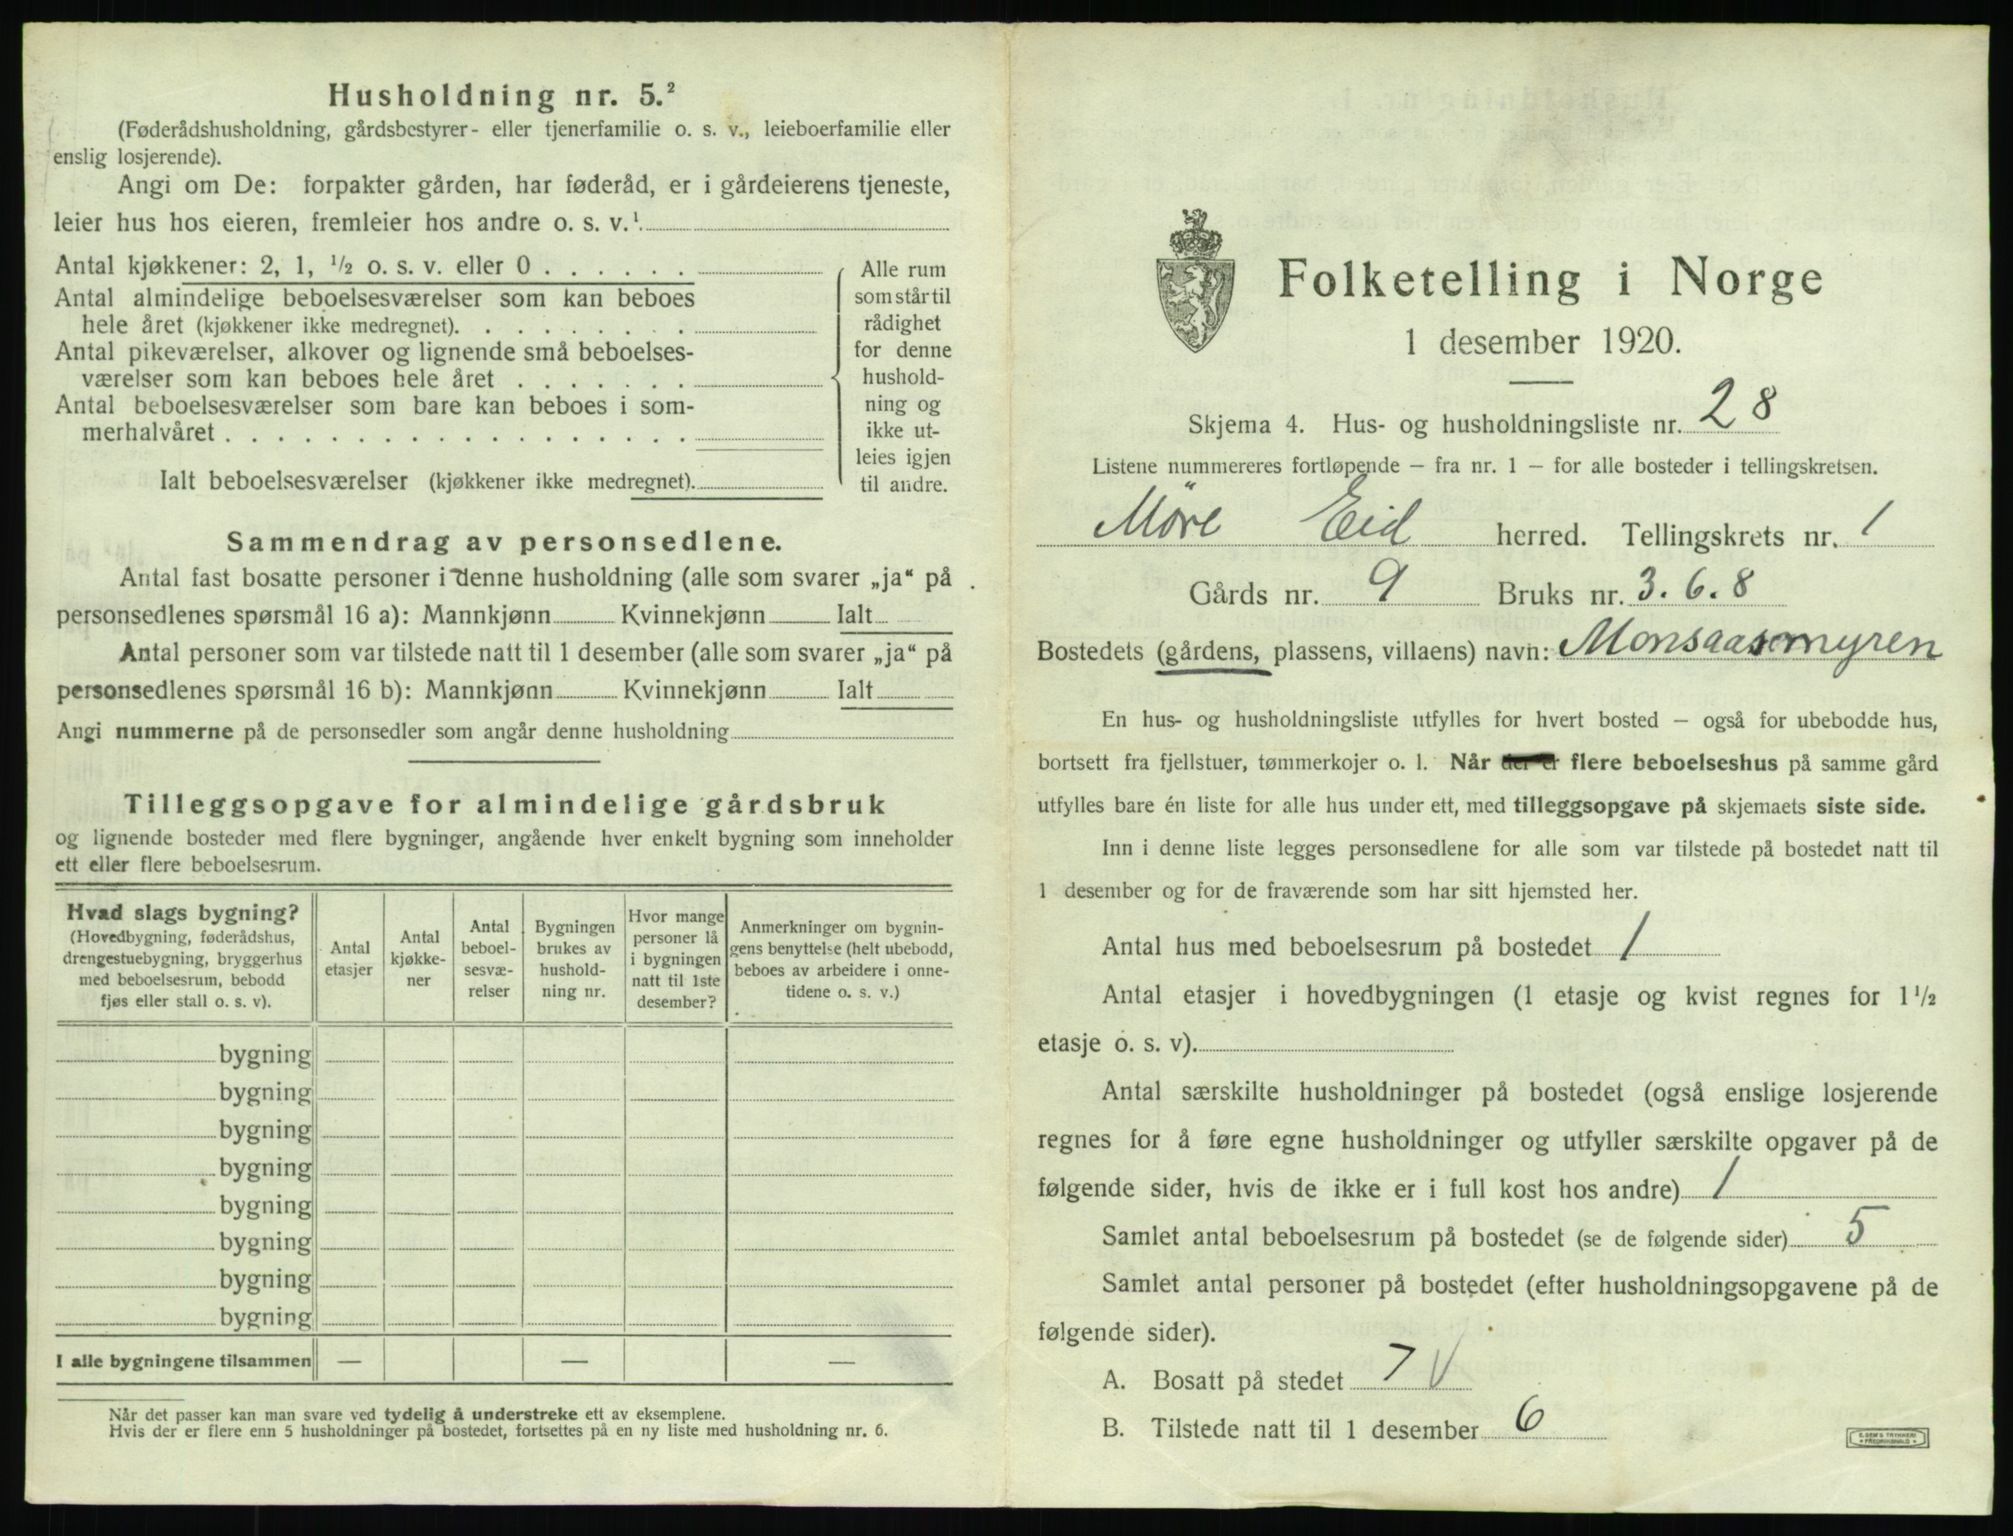 Husholdning nr. 5.²
(Føderådshusholdning, gårdsbestyrer- eller tjenerfamilie o. s. v., leieboerfamilie eller
enslig losjerende).
Angi om De: forpakter gården, har føderåd, er i gårdeierens tjeneste,
leier hus hos eieren, fremleier hos andre o. s. v.¹
Antal kjøkkener: 2, 1, ½ o. s. v. eller 0 . . . . . .
Antal almindelige beboelsesværelser som kan beboes
hele året (kjøkkener ikke medregnet). . . . . . . . .
Antal pikeværelser, alkover og lignende små beboelses-
værelser som kan beboes hele året . . . . . . .
Antal beboelsesværelser som bare kan beboes i som-
merhalvåret . . . . . . . . . . . . . . . . . .
Ialt beboelsesværelser (kjøkkener ikke medregnet).
Alle rum
som står til
rådighet
for denne
hushold-
ning og
ikke ut-
leies igjen
til andre.
Sammendrag av personsedlene.
Antal fast bosatte personer i denne husholdning (alle som svarer „ja“ på
personsedlenes spørsmål 16 a): Mannkjønn Kvinnekjønn Ialt
Antal personer som var tilstede natt til 1 desember (alle som svarer „ja“ på
personsedlenes spørsmål 16 b): Mannkjønn Kvinnekjønn Ialt
Angi nummerne på de personsedler som angår denne husholdning
Tilleggsopgave for almindelige gårdsbruk
og lignende bosteder med flere bygninger, angående hver enkelt bygning som inneholder
ett eller flere beboelsesrum.
Hvad slags bygning?
(Hovedbygning, føderådshus,
drengestuebygning, bryggerhus
med beboelsesrum, bebodd
fjøs eller stall o. s. v).
Antal
etasjer
Antal
kjøkke-
ner
Antal
beboel-
sesvæ-
relser
Bygningen
brukes av
hushold-
ning nr.
Hvor mange
personer lå
i bygningen
natt til 1ste
desember?
Anmerkninger om bygnin-
gens benyttelse (helt ubebodd,
beboes av arbeidere i onne-
tidene o. s. v.)
bygning
bygning
bygning
bygning
bygning
bygning
bygning
bygning
I alle bygningene tilsammen — — —
Når det passer kan man svare ved tydelig å understreke ett av eksemplene.
Hvis der er flere enn 5 husholdninger på bostedet, fortsettes på en ny liste med husholdning nr. 6.
Folketelling i Norge
1 desember 1920.
Skjema 4. Hus- og husholdningsliste nr. 28
Listene nummereres fortløpende – fra nr. 1 – for alle bosteder i tellingskretsen.
Møre Eid herred. Tellingskrets nr. 1
Gårds nr. 9 Bruks nr. 3. 6. 8
Bostedets (gårdens, plassens, villaens) navn: Monsaasmyren
En hus- og husholdningsliste utfylles for hvert bosted – også for ubebodde hus,
bortsett fra fjellstuer, tømmerkojer o. l. Når der er flere beboelseshus på samme gård
utfylles bare én liste for alle hus under ett, med tilleggsopgave på skjemaets siste side.
Inn i denne liste legges personsedlene for alle som var tilstede på bostedet natt til
1 desember og for de fraværende som har sitt hjemsted her.
Antal hus med beboelsesrum på bostedet 1
Antal etasjer i hovedbygningen (1 etasje og kvist regnes for 1½
etasje o. s. v).
Antal særskilte husholdninger på bostedet (også enslige losjerende
regnes for å føre egne husholdninger og utfyller særskilte opgaver på de
følgende sider, hvis de ikke er i full kost hos andre) 1
Samlet antal beboelsesrum på bostedet (se de følgende sider) 5
Samlet antal personer på bostedet (efter husholdningsopgavene på de
følgende sider).
A. Bosatt på stedet 7 V
B. Tilstede natt til 1 desember 6